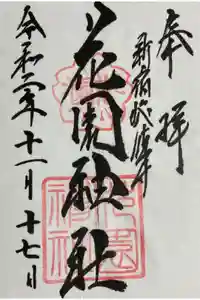 奉拝
新宿総鎮守
花園神社
令和二年十一月十七日
花園
神社